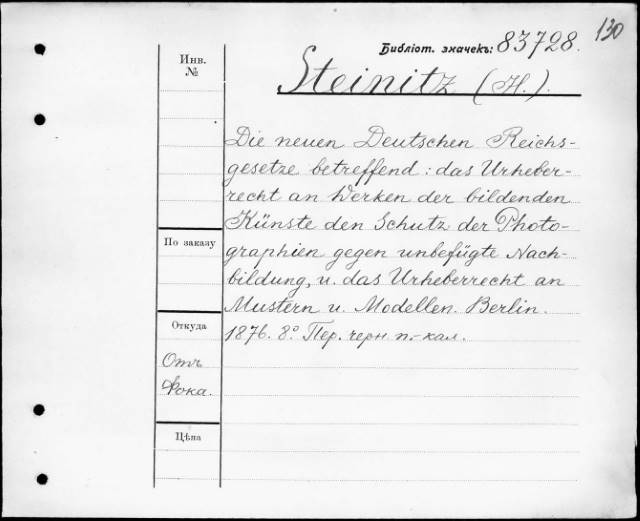 130
Библіот. значекъ: 83728.
Инв.
№
Steinitz (H.).
Die neuen Deutschen Reichs-
gesetze betreffend: das Urheber-
recht an Werken der bildenden
Künste den Schutz der Photo-
graphien gegen unbefügte Nach-
bildung, u. das Urheberrecht an
Mustern u. Modellen. Berlin.
1876. 8º. Пер. черн. п.-кал.
По заказу
Откуда
Отъ
Фока.
Цѣна